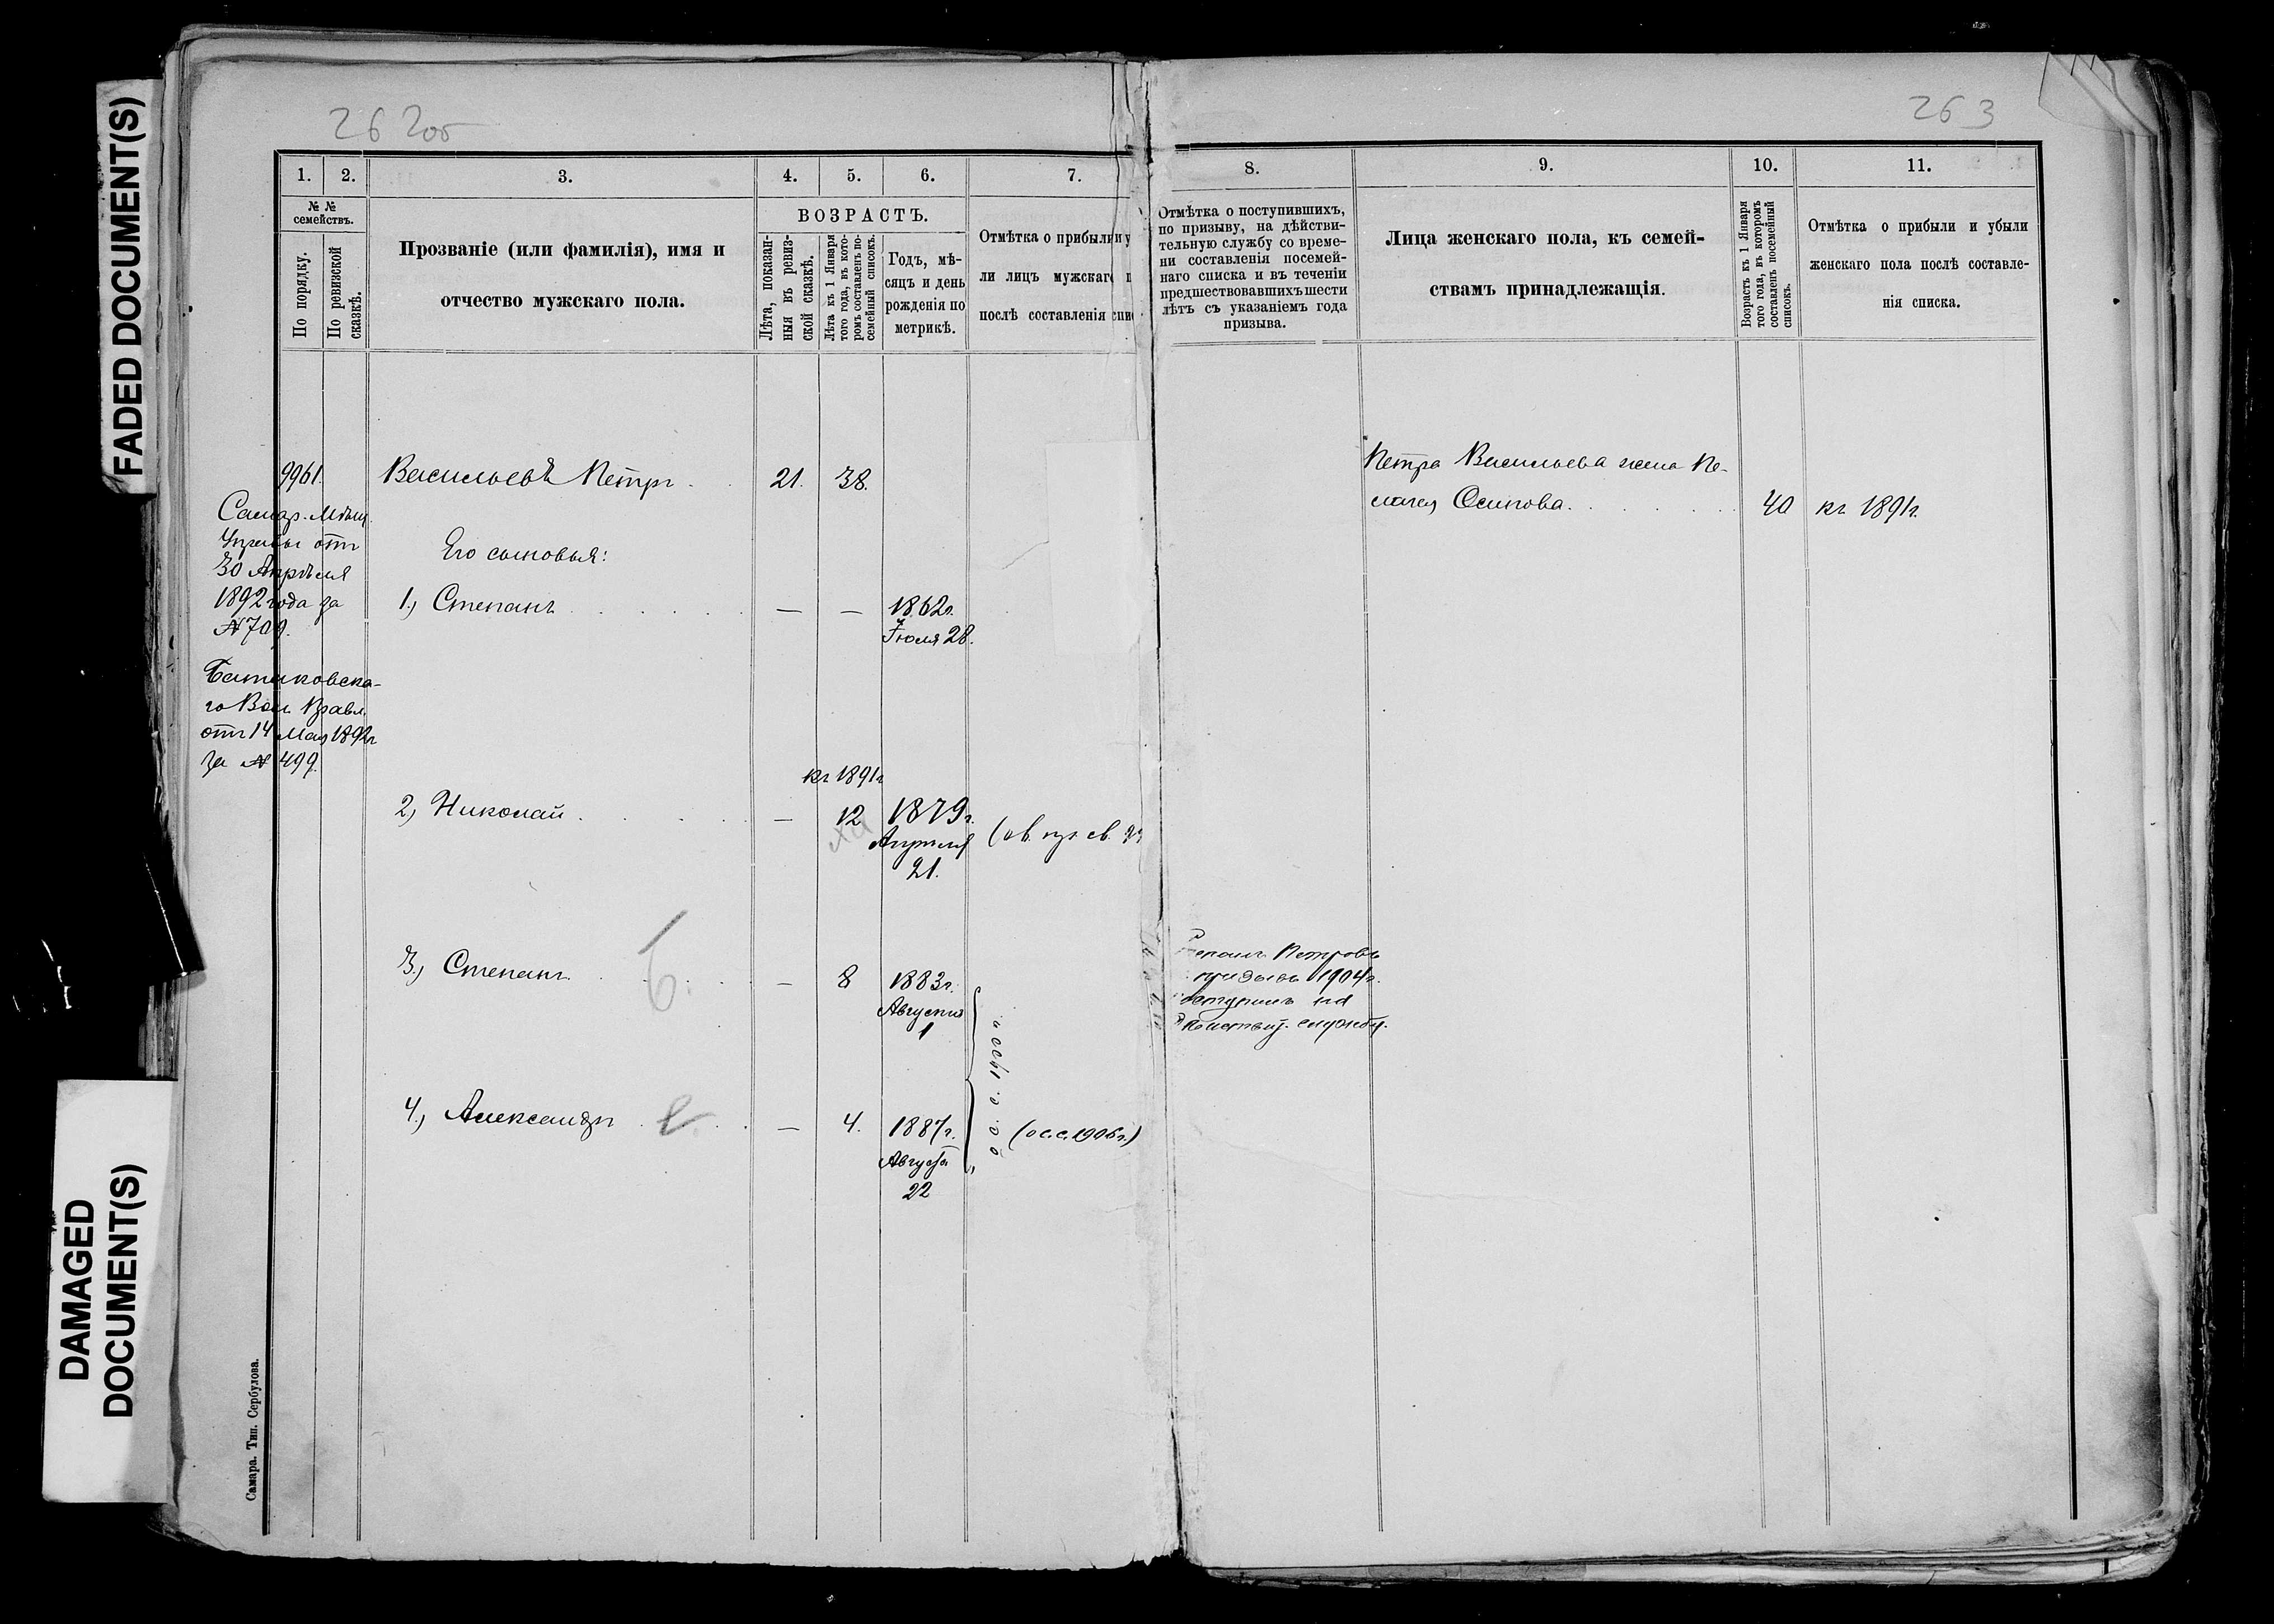 FADED DOCUMENT(S)
DAMAGED
DOCUMENT(S)
262об
1.
2.
3.
4.
5.
6.
7.
№ №
семействъ.
По порядку.
По ревизской
сказкѣ.
Прозваніе (или фамилія), имя и
отчество мужскаго пола.
ВОЗРАСТЪ.
Лѣта, показан-
ныя въ ревиз-
ской сказкѣ.
Лѣта къ 1 Января
того года, въ кото-
ромъ составленъ по-
семейный списокъ.
Годъ, мѣ-
сяцъ и день
рожденія по
метрикѣ.
Отмѣтка о прибыли и у
ли лицъ мужскаго п
послѣ составленія спис
9961.
Васильевъ Петръ
21.
38.
Самар. Мѣщ.
Управы отъ
30 Апрѣля
1892 года за
№ 709.
Его сыновья:
1.) Степанъ
—
—
1862г.
Іюля 28.
го Вол. Правл.
отъ 14 Мая 1892г
за № 499.
къ 1891г
2.) Николай
—
12
1879г.
Апрѣля
21.
3.) Степанъ
—
8
1883г.
Августа
1
4.) Александръ
—
4.
1887г.
Августа
22
о. о. с. 1900 г.
(о с. с. 1906г.)
Самара. Тип. Сербулова.
263
8.
9.
10.
11.
Отмѣтка о поступившихъ,
по призыву, на дѣйстви-
тельную службу со време-
ни составленія посемей-
наго списка и въ теченіи
предшествовавшихъ шести
лѣтъ съ указаніемъ года
призыва.
Лица женскаго пола, къ семей-
ствамъ принадлежащія.
Возрастъ къ 1 Января
того года, въ которомъ
составленъ посемейный
списокъ.
Отмѣтка о прибыли и убыли
женскаго пола послѣ составле-
нія списка.
Петра Васильева жена Пе-
лагея Осипова.
40
къ 1891г.
Степанъ Петровъ
призывъ 1904г.
поступилъ на
дѣйствит. службу.